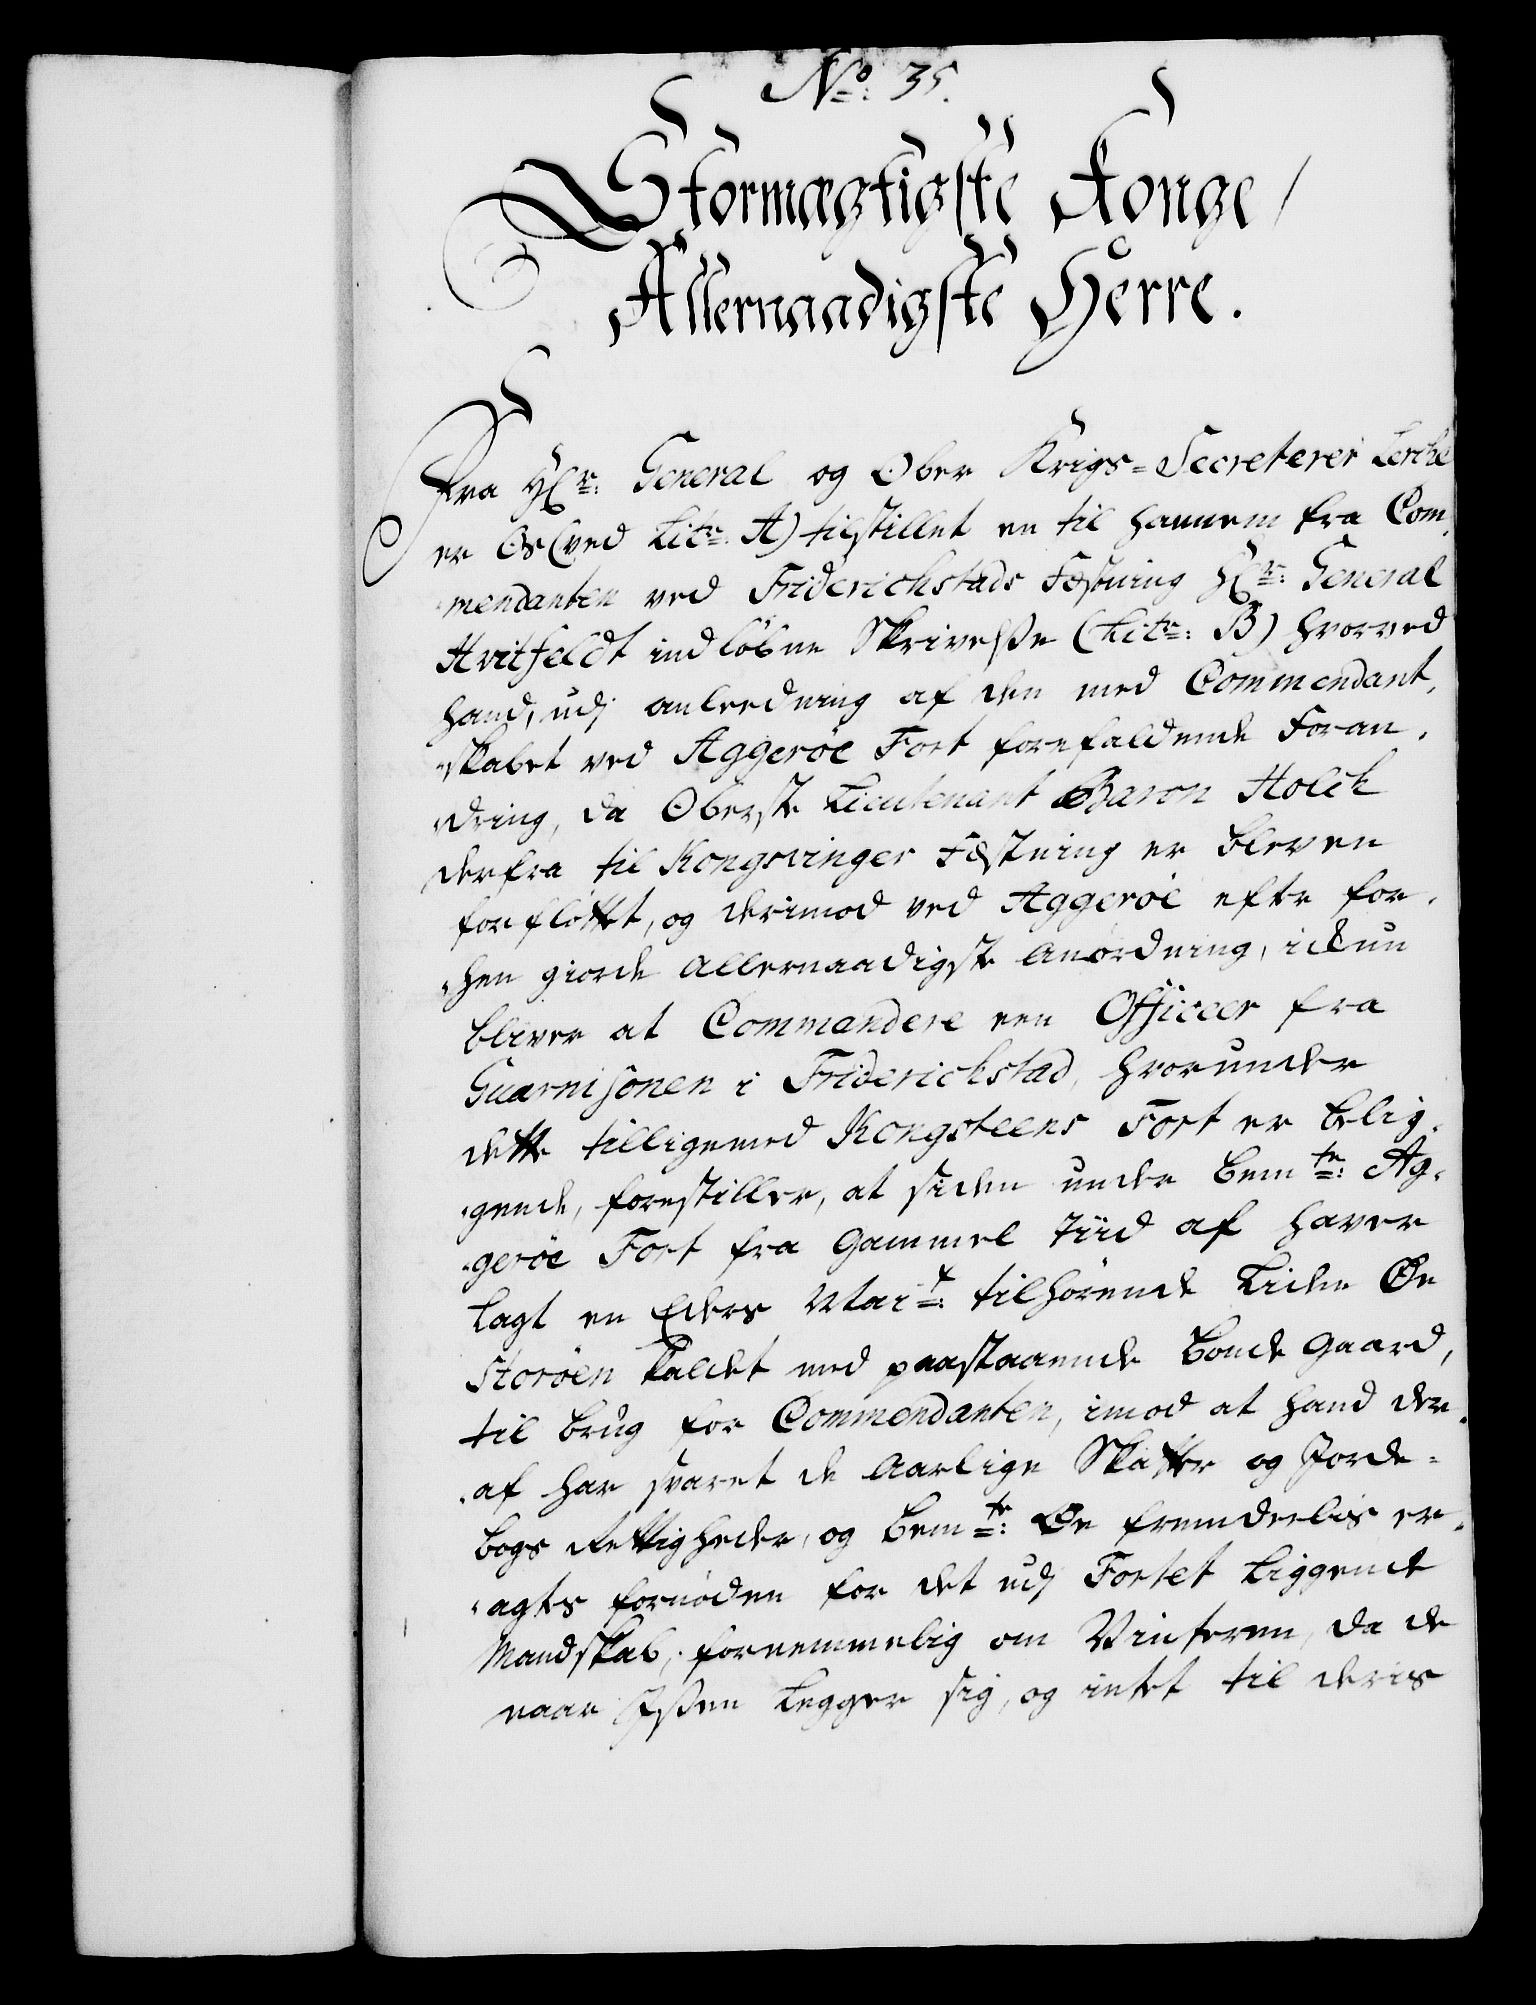 No: 35.
Stormægtigste Konge /
Allernaadigste Herre.
Fra Hr: General og Ober Krigs-Secreterer Lerche
er Os (ved Litr: A) tilstillet en til hannem fra Com-
-mendanten ved Friderichstads Fæstning Hr: General
Hvitfeldt indløbne Skrivelße (Litr: B) hvorved
hand, udj anleedning af den med Commendant-
-skabet ved Aggerøe Fort forefaldende Foran-
-dring, da Oberste Lieutenant Baron Holck
derfra til Kongsvinger Fæstning er bleven
forfløttet, og derimod ved Aggerøe efter for-
-hen giorde allernaadigste Anordning, ickun
bliver at Commandere een Officeer fra
Guarnisonen i Friderichstad, hvorunder
dette tilligemed Kongsteens Fort er belig-
-gende, forestiller, at siden under bemte: Ag-
-gerøe Fort fra gammel Tiid af haver
lagt en Eders Maits: tilhørende liden Øe
Storøen kaldet med paastaaende bonde Gaard,
til brug for Commendanten, imod at hand der-
-af har svaret de aarlige Skatter og Jorde-
bogs Rettigheder, og bemte: Øe fremdeelis er-
-agtes fornøden for det udj Fortet liggende
Mandskab, fornemmelig om Vinteren, da de
naar Jßen legger sig, og intet til deris